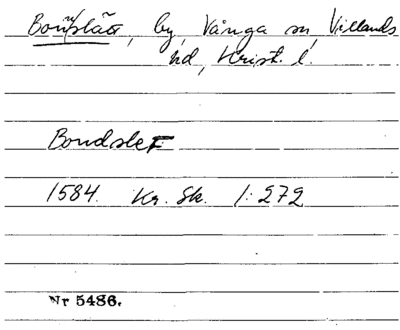 Bonslätt, by, Vånga sn, Villands
hd, Krist. l.
Bondslet
1584. Kr. Sk. 1:272
Nr 5486.